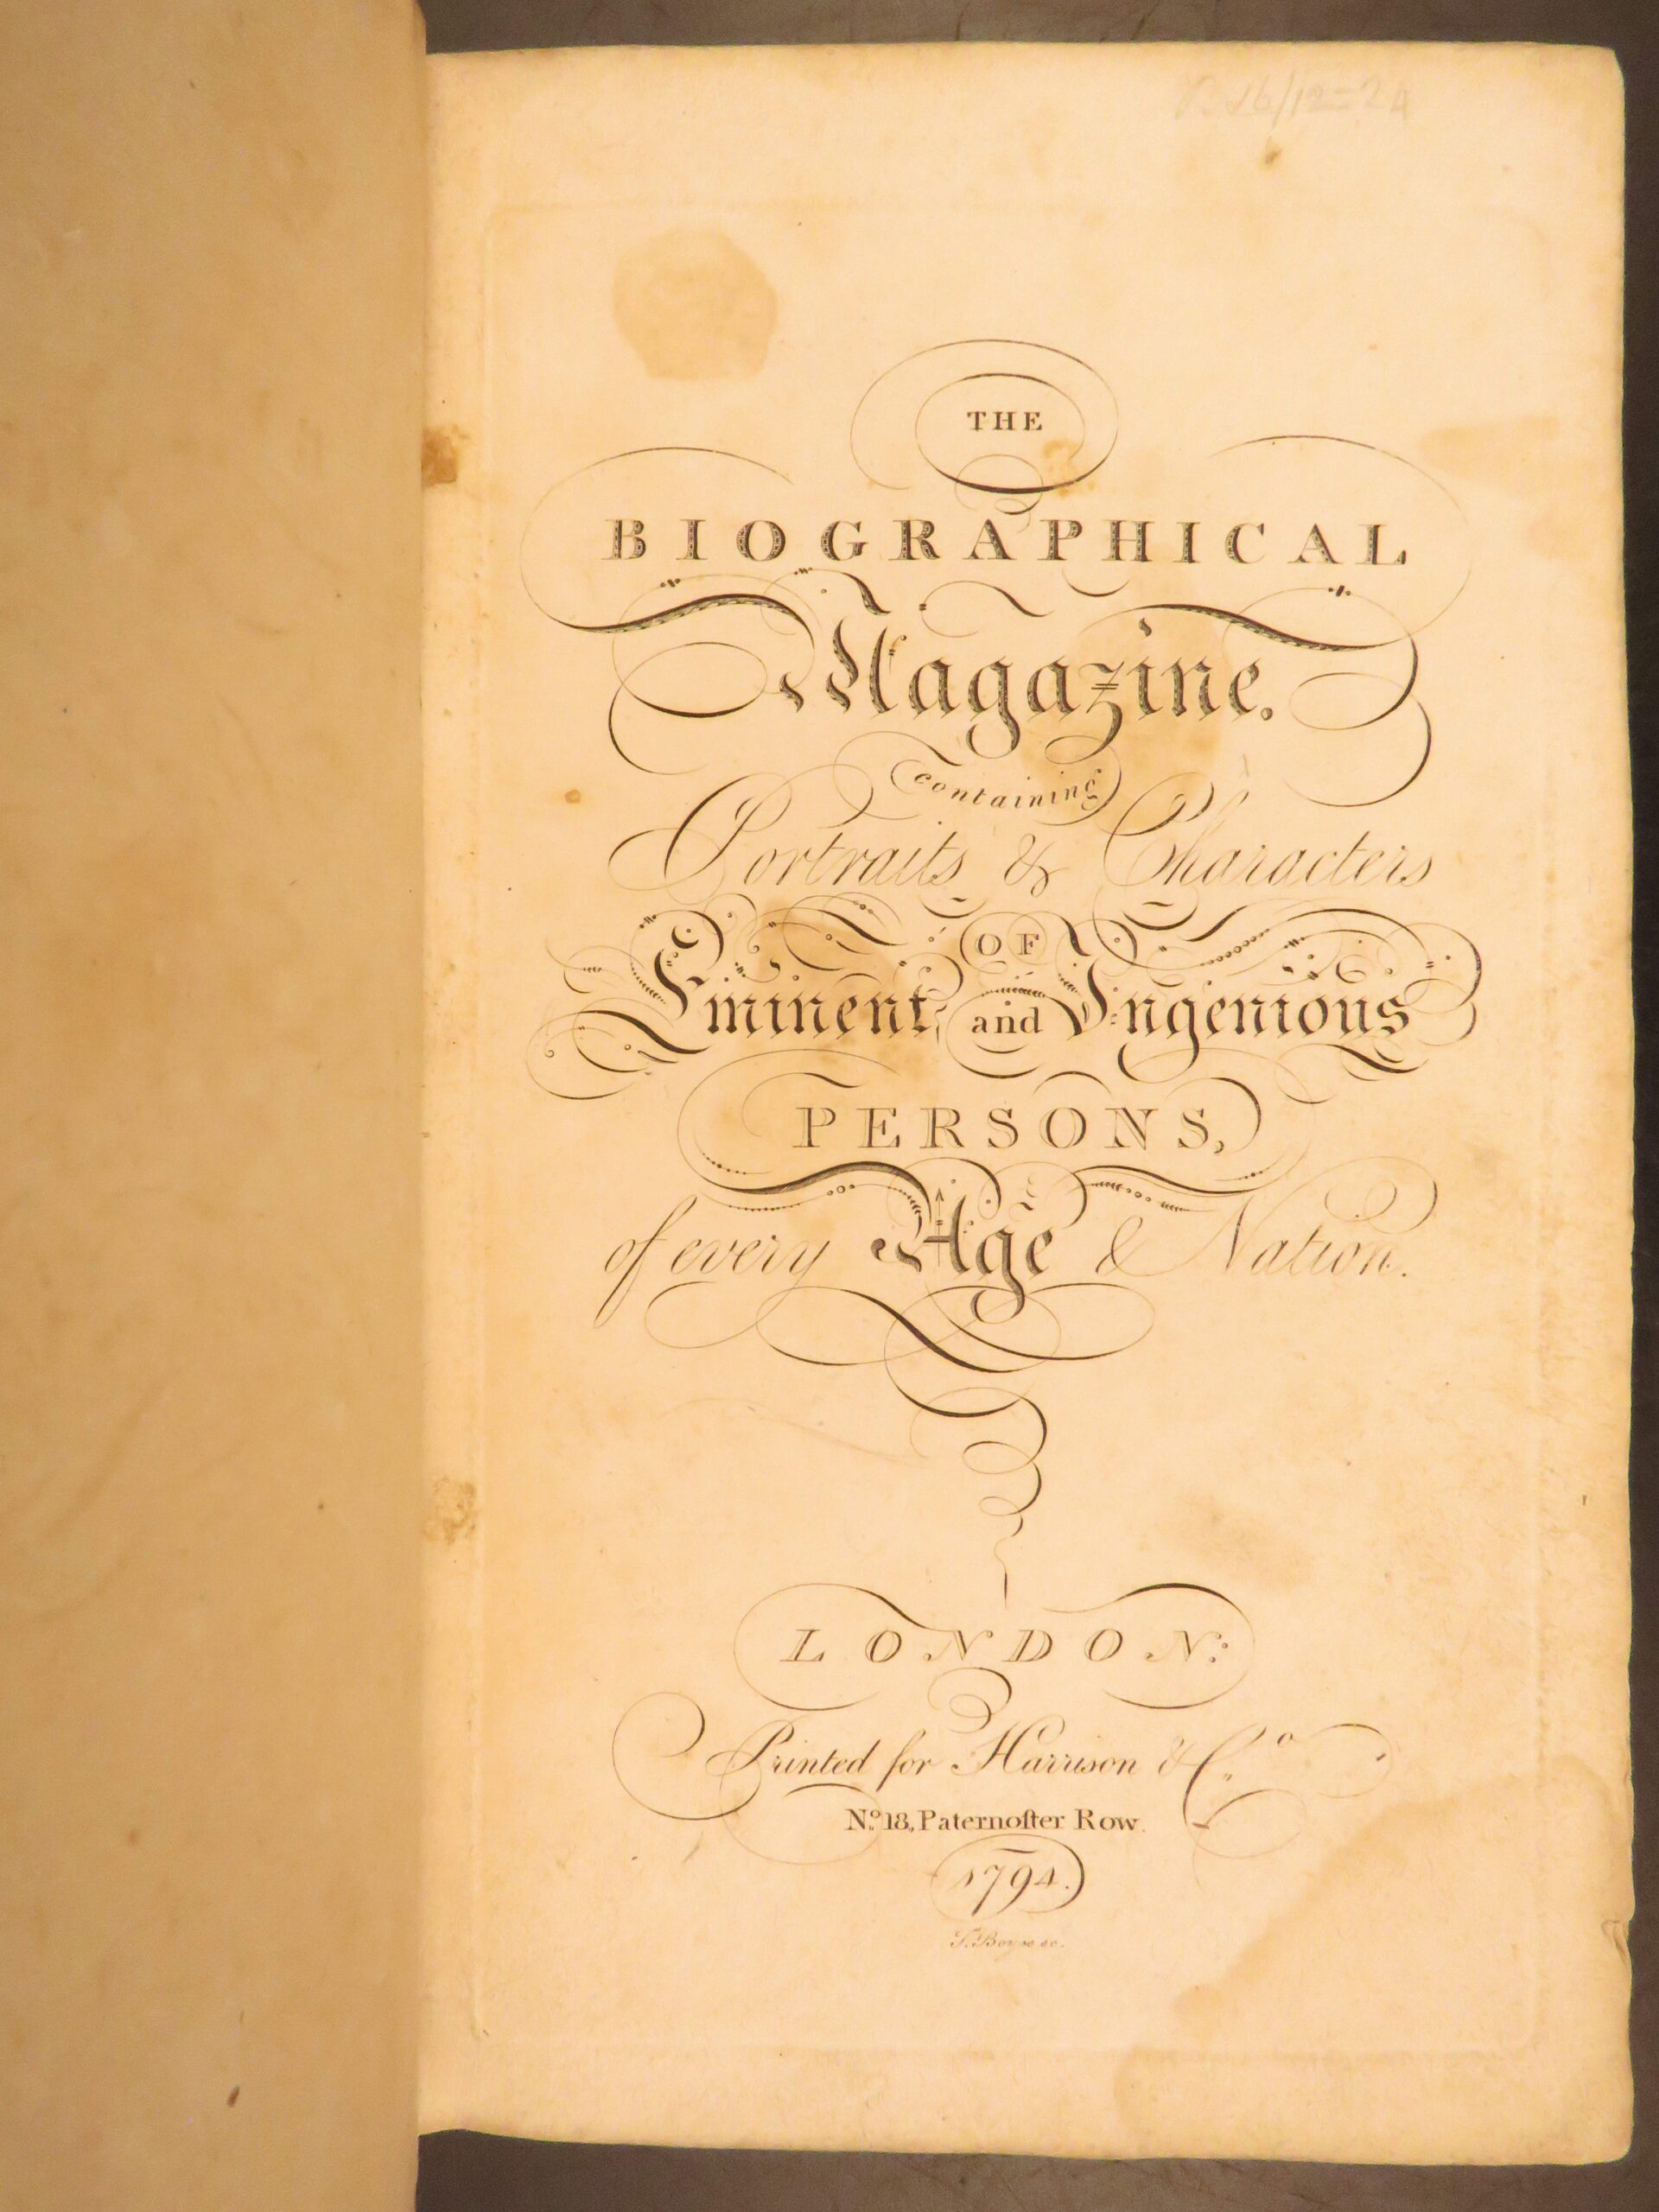 THE
BIOGRAPHICAL
Magazine.
containing
Portraits & Characters
OF
Eminent and Ingenious
PERSONS,
of every Age & Nation.
LONDON:
Printed for Harrison & Co.
No. 18, Paternoſter Row.
1794.